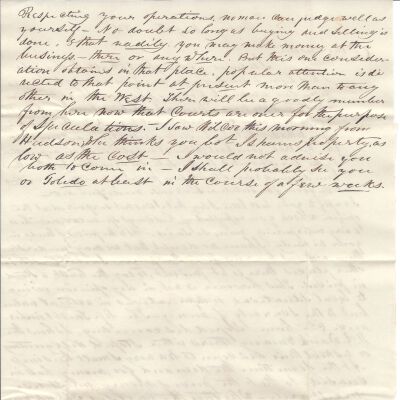 Respecting your operations, no man can judge well as
yourself – No doubt so long as buying and selling is
done, & that readily you may make money at the
business – there or anywhere. But this one consider-
ation obtains in that place, popular attention is di-
rected to that point at present more than to any
other in the West. There will be a goodly number
from here now that Courts are over for the purpose
of Speculations. I saw this morning from
Hudson, He thinks you both property as
low as the cost – I would not advise you
both to come in – I shall probably see you
or Toledo at least in the course of a few weeks.